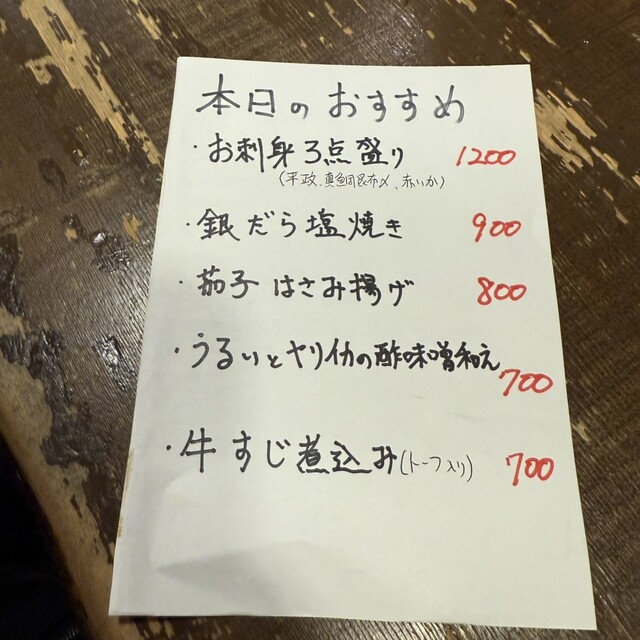 本日のおすすめ
・お刺身3点盛り 1200
(平政、真鯛昆布〆、赤いか)
・銀だら塩焼き 900
・茄子はさみ揚げ 800
・うるいとヤリイカの酢味噌和え
700
・牛すじ煮込み(トーフ入り) 700